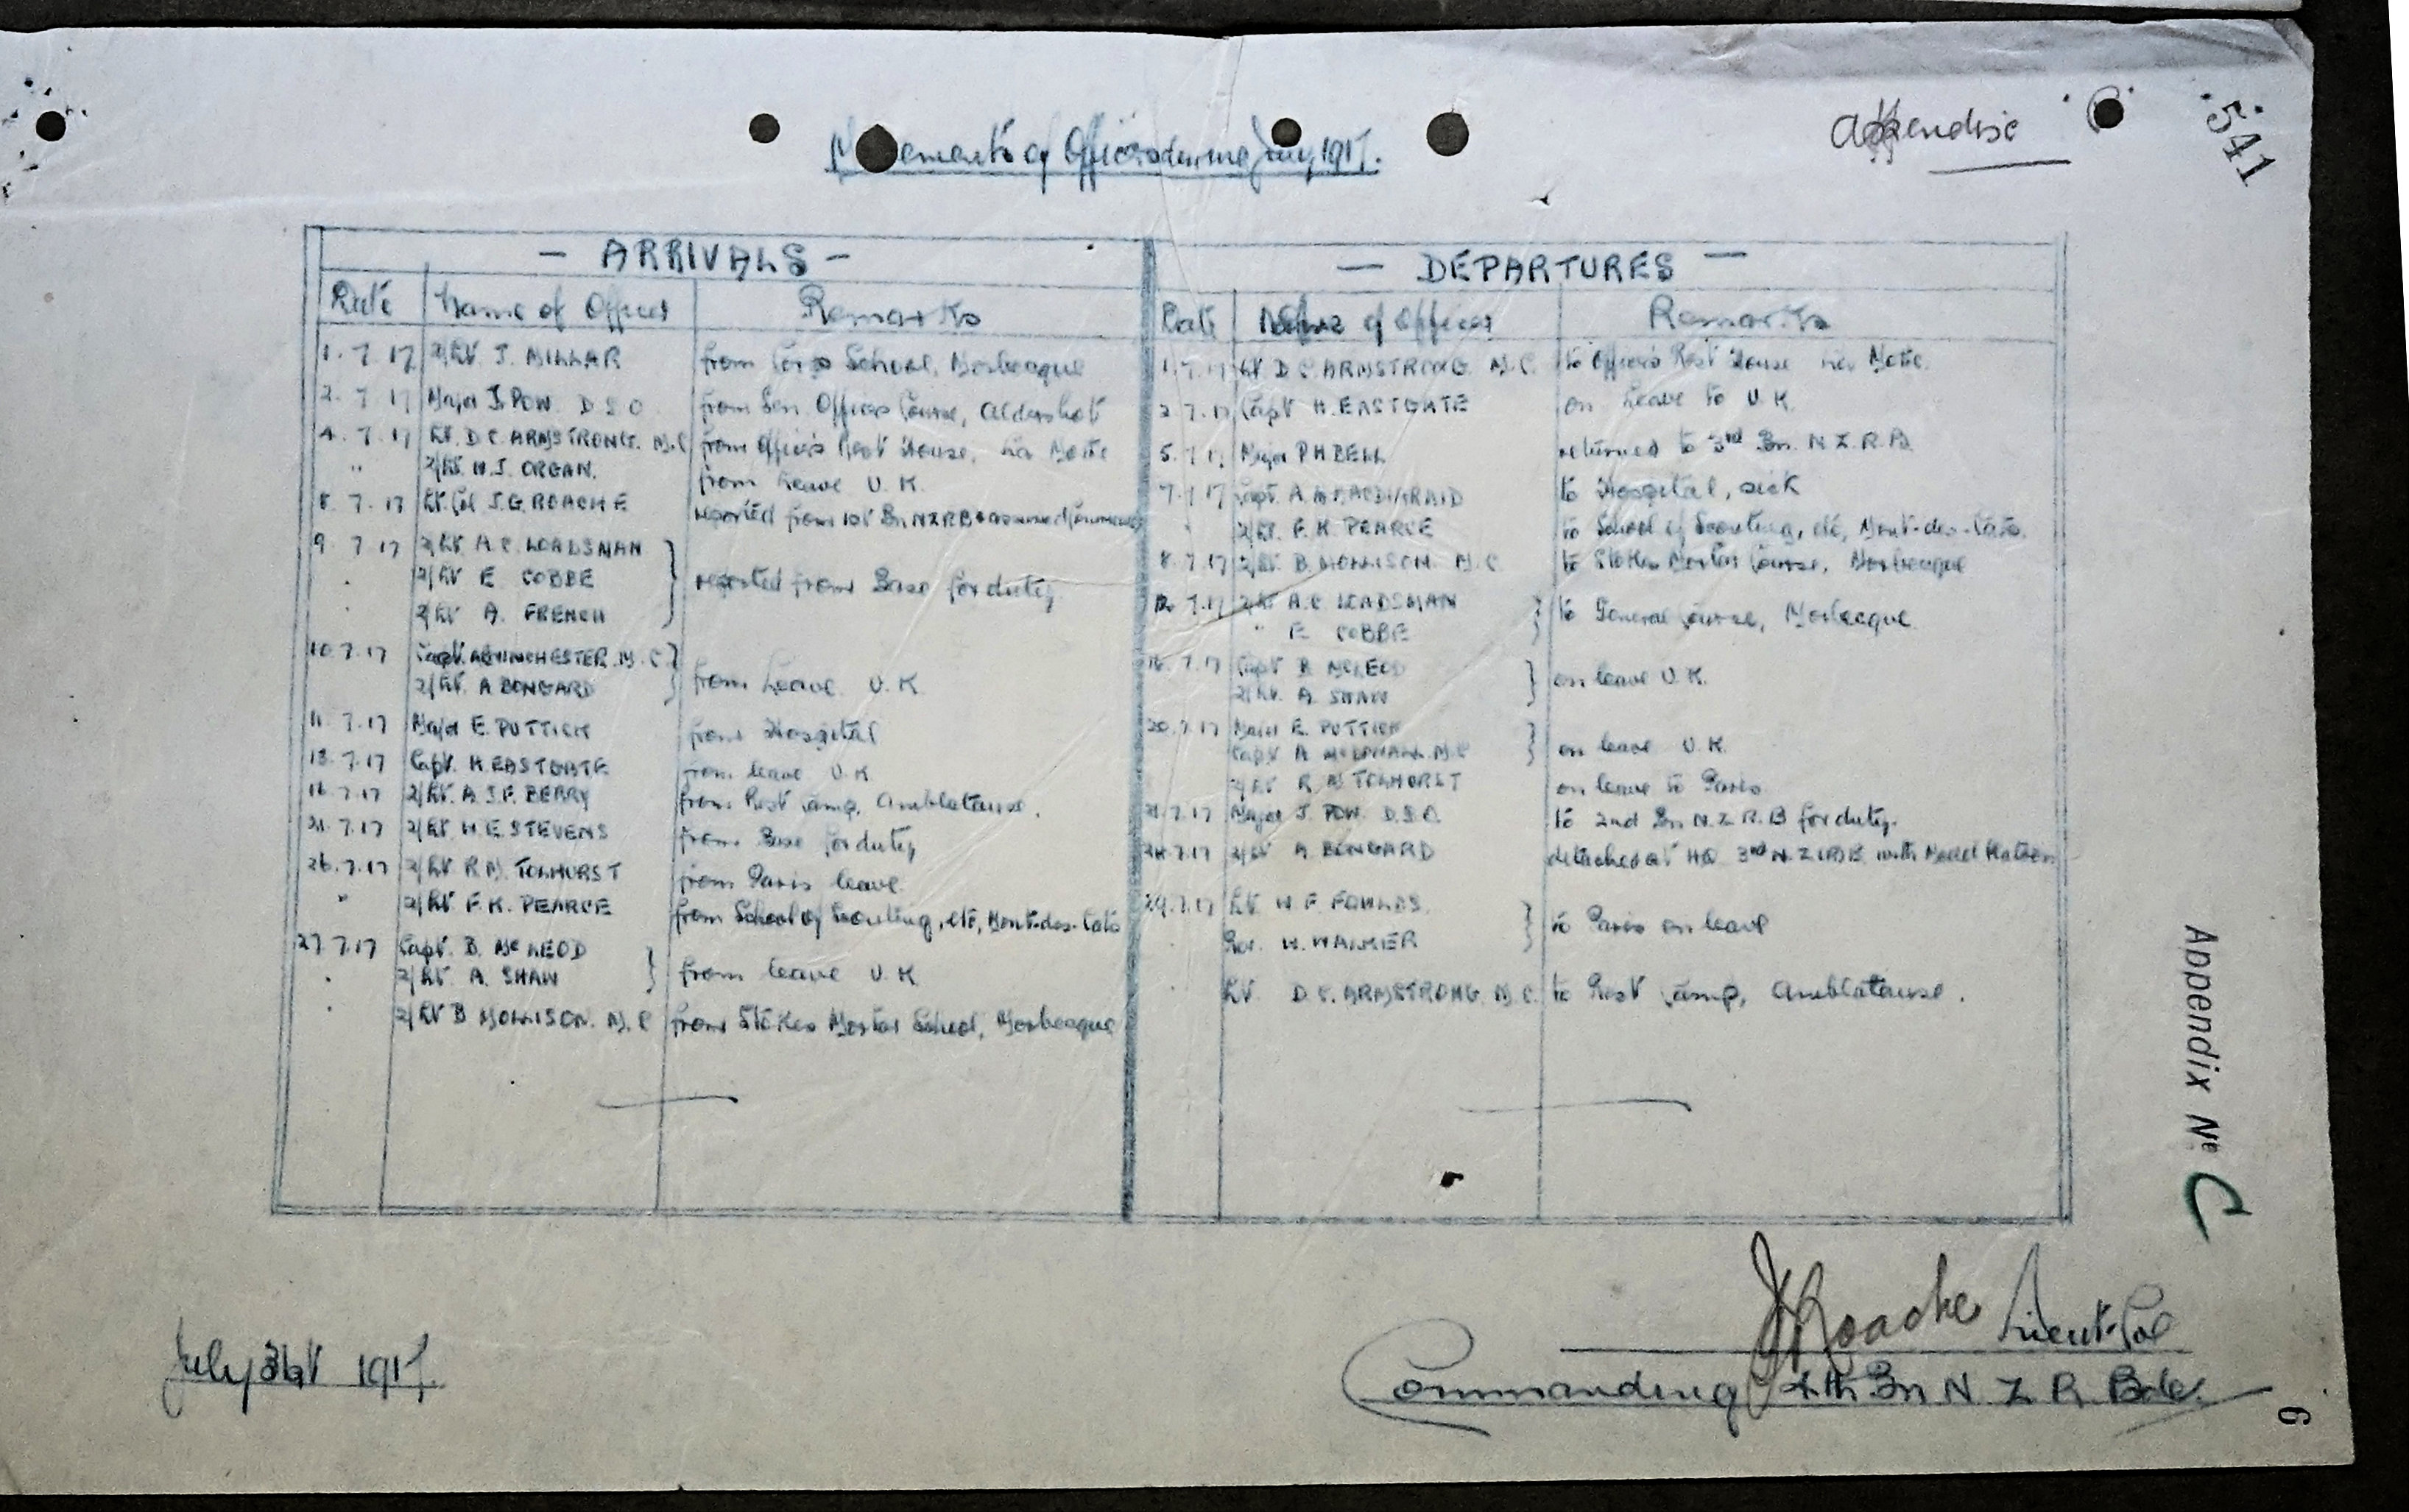 Movements of Officers during July, 1917.
Appendix C
541
- ARRIVALS -
Date Name of Officer Remarks
1.7.17 2/Lt. J. MILLAR from Corps School, Morbecque
2.7.17 Major J. POW. D.S.O. from Sen. Officers Course, Aldershot
4.7.17 Lt. D.C. ARMSTRONG. M.C. from Officers Rest House,
" 2/Lt. N.J. ORGAN. from Leave U.K.
8.7.17 Lt. Col J.G. ROACHE reported from 1st Bn. N.Z.R.B & assumed Command
9.7.17 2/Lt A.C. LOADSMAN
" 2/Lt E COBBE } reported from Base for duty
" 2/Lt A. FRENCH
10.7.17 Capt. WINCHESTER. M.C. }
2/Lt. A BONGARD } from Leave. U.K.
11.7.17 Major E. PUTTICK from Hospital
13.7.17 Capt. H. EASTGATE from leave U.K
16.7.17 2/Lt. A.J.F. BERRY from Rest Camp, Ambleteuse.
21.7.17 2/Lt H.E. STEVENS from Base for duty
26.7.17 2/Lt R.M. TOLHURST from Paris leave.
" 2/Lt F.K. PEARCE from School of Scouting, etc, Mont-des-Cats
27.7.17 Capt. B. McLEOD
" 2/Lt. A. SHAW } from leave U.K
" 2/Lt B MOLLISON. M.C from Stokes Mortar School, Morbecque
- DEPARTURES -
Date Name of Officer Remarks
1.7.17 Lt D.C. ARMSTRONG. M.C. to Officers Rest House
2.7.17 Capt H. EASTGATE on Leave to U.K.
5.7.17 Major P H BELL returned to 3rd Bn. N.Z.R.B.
7.7.17 Capt. A. to Hospital, sick
" 2/Lt. F.K. PEARCE to School of Scouting, etc, Mont-des-Cats.
8.7.17 2/Lt. B. MOLLISON M.C. to Stokes Mortar Course, Morbecque
12.7.17 2/Lt A.C. LOADSMAN
" E COBBE } to General Course, Morbecque
16.7.17 Capt B McLEOD
2/Lt. A. SHAW } on leave U.K.
20.7.17 Major E. PUTTICK
Capt A. M.C } on leave U.K.
2/Lt R.M. TOLHURST on leave to Paris
21.7.17 Major J. POW. D.S.O. to 2nd Bn N.Z.R.B for duty.
24.7.17 2/Lt A. BONGARD detached at HQ 3rd N.Z.(R)B. with Model Platoon
29.7.17 Lt. N.F. FOWLDS.
" Rev. W. WALKER } to Paris on leave
" Lt D.C. ARMSTRONG. M.C. to Rest Camp, Ambleteuse.
Appendix No C
July 31st 1917.
JGRoache Lieut-Col
Commanding 4th Bn N.Z.R. Bde.
6